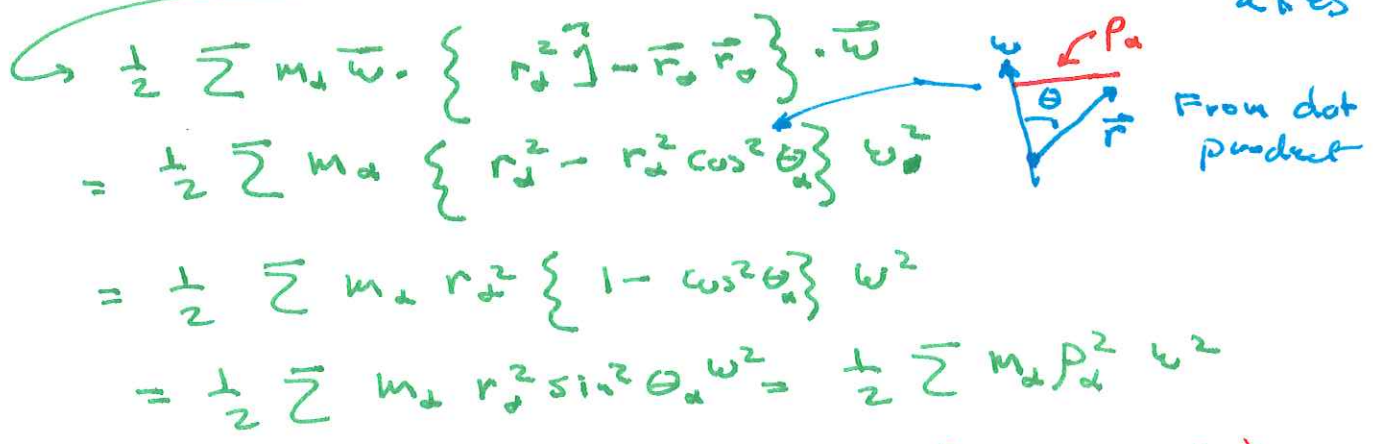 axes
1/2 Σ m_α ω⃗ · { r_α² 1⃡ - r⃗_α r⃗_α } · ω⃗
ω θ r⃗ ρ_α
From dot
product
= 1/2 Σ m_α { r_α² - r_α² cos² θ_α } ω²
= 1/2 Σ m_α r_α² { 1 - cos² θ_α } ω²
= 1/2 Σ m_α r_α² sin² θ_α ω² = 1/2 Σ m_α ρ_α² ω²